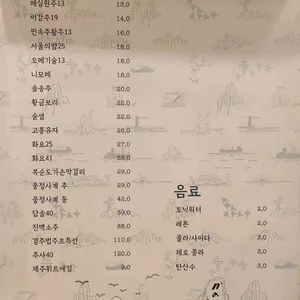 매실원주13 13.0
이강주19 14.0
민속주왕주13 16.0
서울의밤25 18.0
오메기술13 18.0
니모메 18.0
솔송주 20.0
황금보리 22.0
술샘 22.0
고흥유자 26.0
화요25 27.0
화요41 53.0
복순도가손막걸리 29.0
풍정사계 추 29.0
풍정사계 동 42.0
담솔40 59.0
진맥소주 88.0
경주법주초특선 110.0
추사40 120.0
제주위트에일 9.0
음료
토닉워터 2.0
레몬 2.0
콜라/사이다 3.0
제로 콜라 3.0
탄산수 3.0